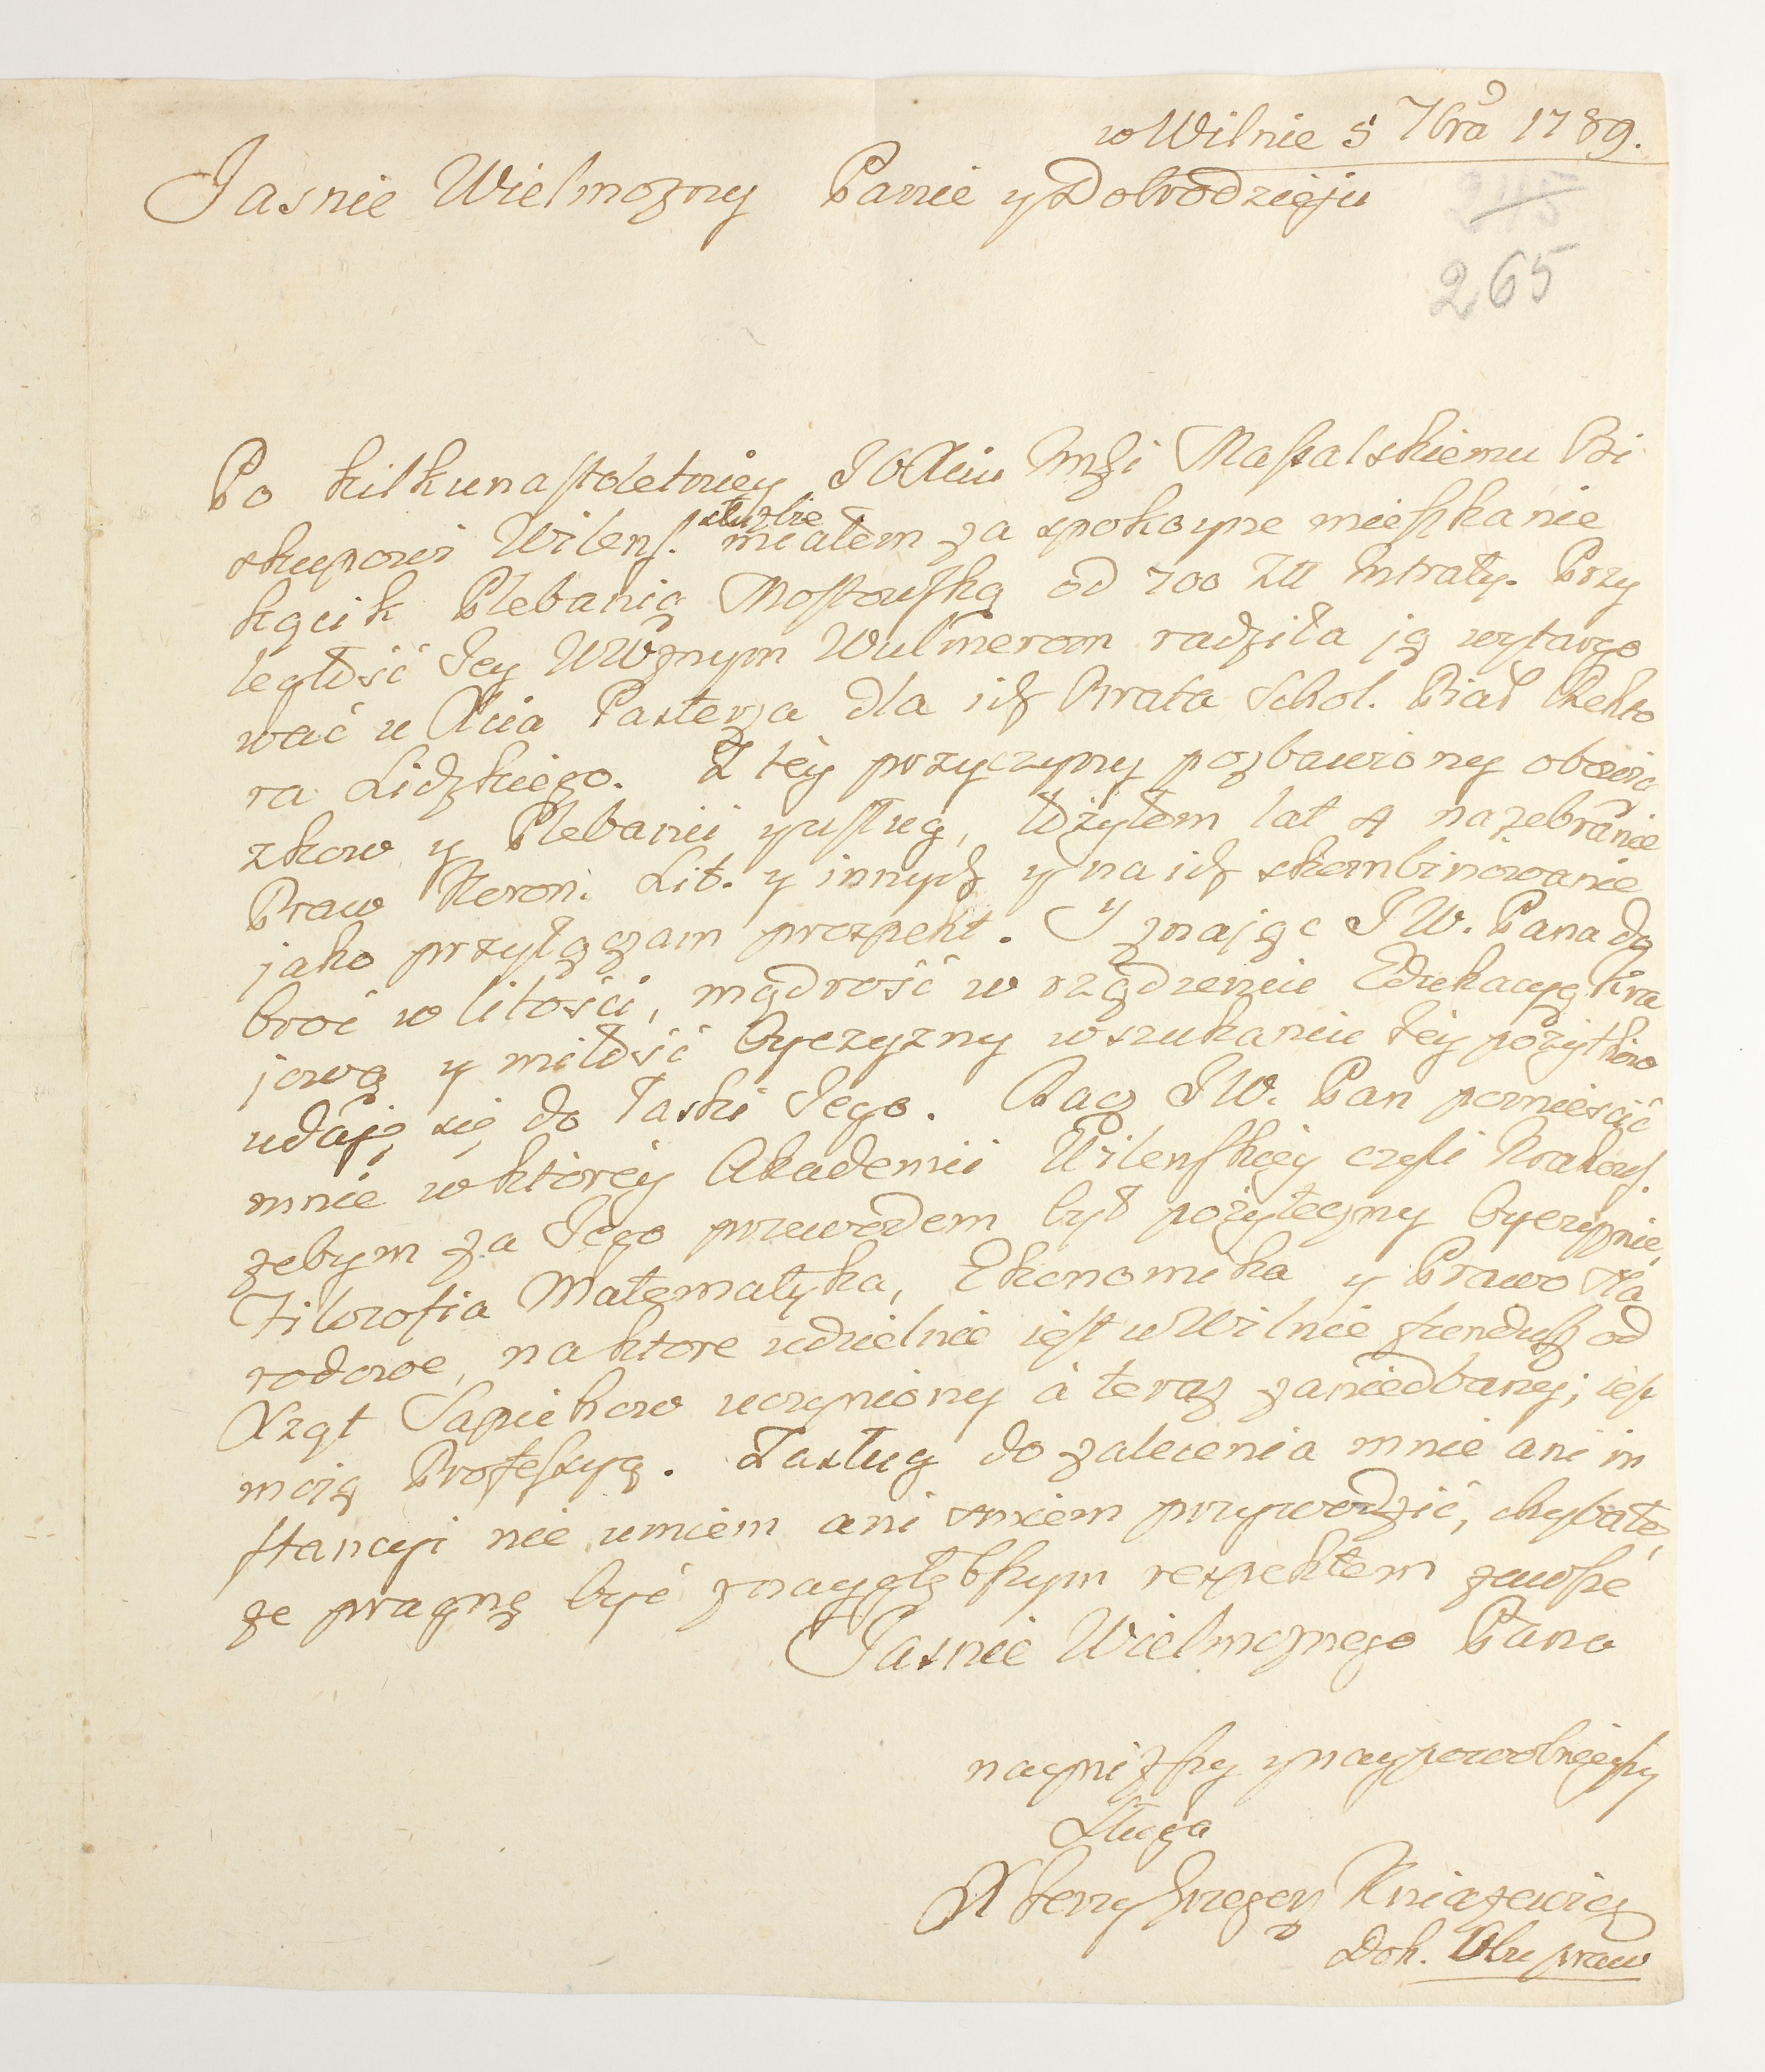 w Wilnie 5 7bra 1789.
Jasnie Wielmozny Panie y Dobrodzieju
245
265
Po kilkunastoletniey JOXciu Massalskiemu Bi
skupowi Wilens. służbie miałem za spokoyne mieszkanie
kącik Plebanią Mostowską od 700 Złł intraty. Przy
ległość Jey WWżnym Wulmerom radziła ją wytargo
wać u Xcia Pasterza dla ich Brata Schol. Piar Rekto
ra Lidzkiego. Z téy przyczyny pozbawiony obowią
zkow y Plebanii y usług, łożyłem lat 4 na zebranie
Praw Koron. Lit. y innych y na ich skombinowanie
jako przyłączam prospekt. Y znając JW. Pana do
broć w litości, mądrość w rządzenie Edukacyą kra
jową y miłość Oyczyzny w szukaniu Jéy pożytków
udaję się do Łaski Jego. Racz JW. Pan pomieścić
mnie w ktoréy Akademii Wilenskiey czyli Krakows.
żebym za Jego przewodem był pożyteczny Oyczyznie,
Filozofia Matematyka, Ekonomika y Prawo Na
rodowe, na ktore udzielnie iest w Wilnie fundusz od
Xząt Sapiehow uczyniony á teraz zaniedbany; iest
moją Professyą. Zasług do zalecenia mnie ani in
stancyi nie umiem ani smiem przywodzić, chyba tę,
że pragnę być z naygłębszym respektem zawsze
Jasnie Wielmoznego Pana
nayniższy y naypowolnieyszy
Sługa
X Jerzy Grzegorz Kniażewicz
Dok. Obu praw